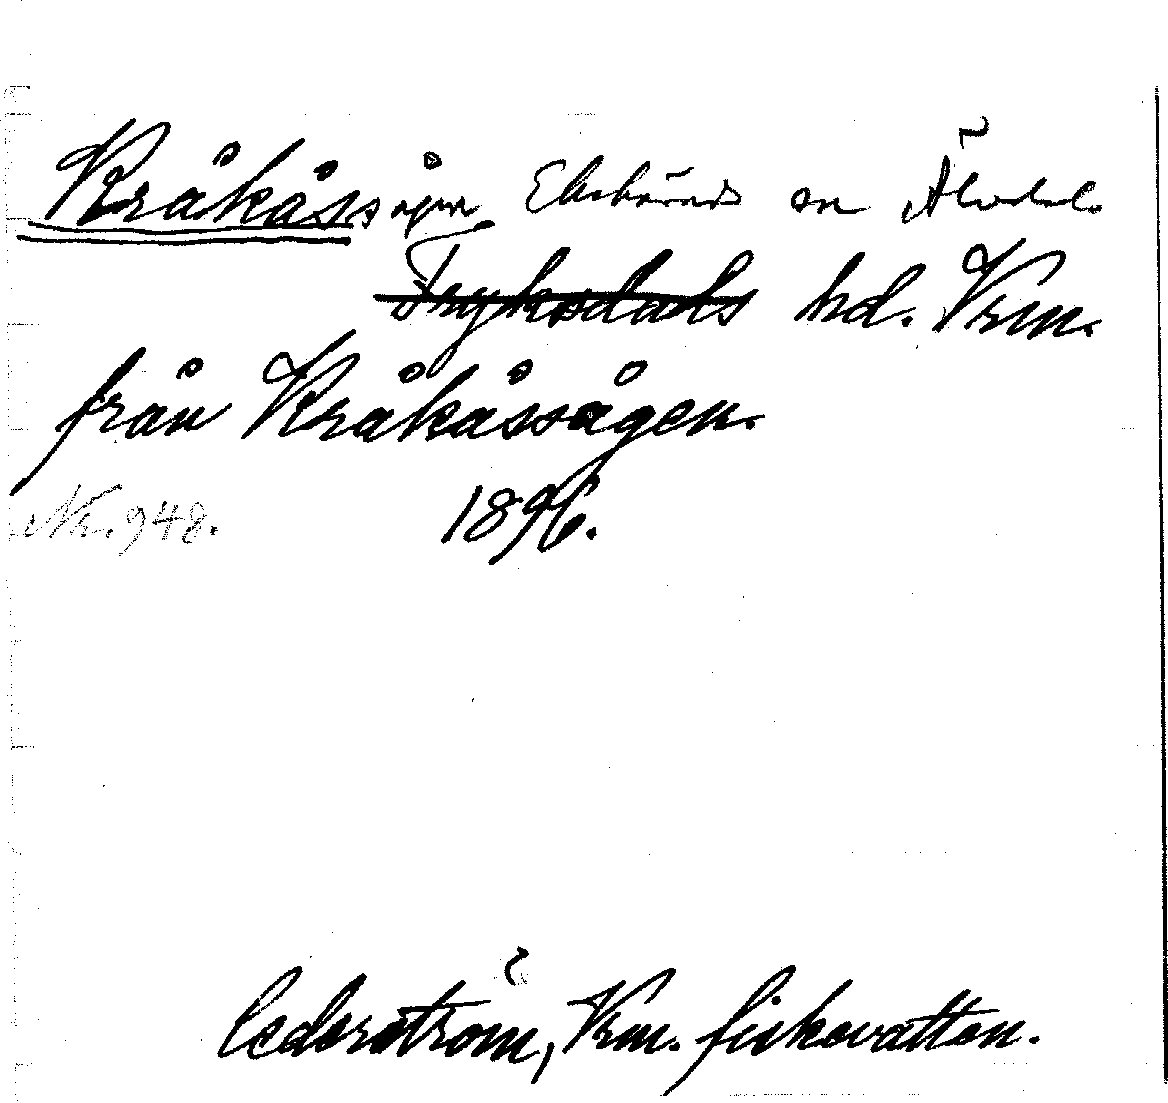 Kråkåssågen Ekshärads sn Älvdals
Fryksdals hd. Vrm.
från Kråkåssågen.
Nr. 948. 1896.
Cederström, Vrm. fiskevatten.